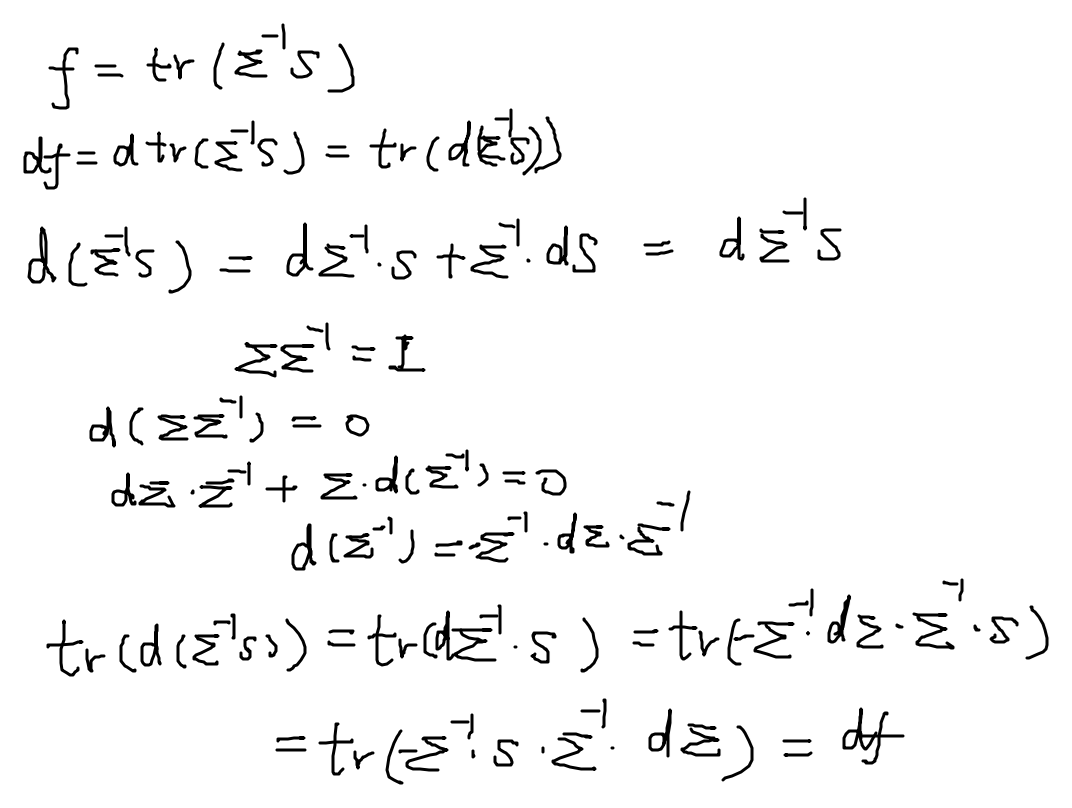 f = tr(Σ⁻¹S)
df = d tr(Σ⁻¹S) = tr(d(Σ⁻¹S))
d(Σ⁻¹S) = dΣ⁻¹·S + Σ⁻¹·dS = dΣ⁻¹S
ΣΣ⁻¹ = I
d(ΣΣ⁻¹) = 0
dΣ·Σ⁻¹ + Σ·d(Σ⁻¹) = 0
d(Σ⁻¹) = -Σ⁻¹·dΣ·Σ⁻¹
tr(d(Σ⁻¹S)) = tr(dΣ⁻¹·S) = tr(-Σ⁻¹·dΣ·Σ⁻¹·S)
= tr(-Σ⁻¹·S·Σ⁻¹·dΣ) = df